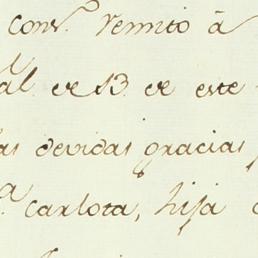 conv.ͬ remito á
al. de 13. de este
as devidas gracias
ª Carlota, hija